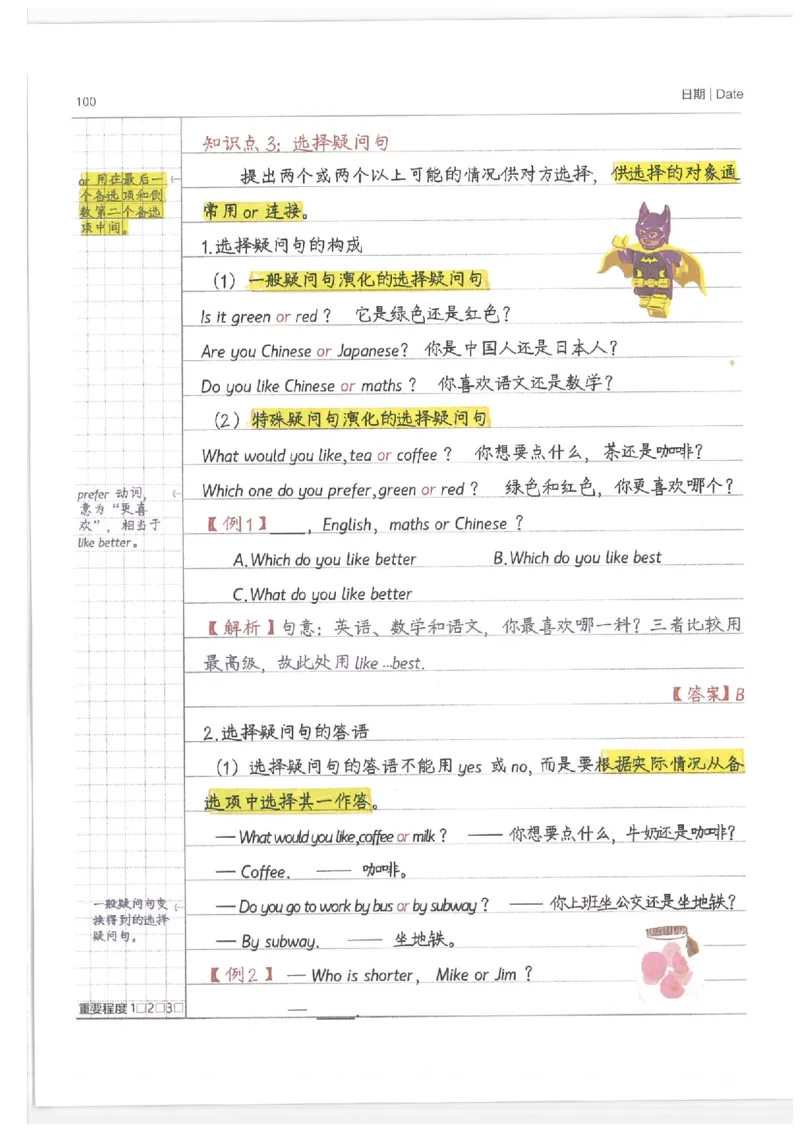 100
日期 | Date
知识点 3：选择疑问句
提出两个或两个以上可能的情况供对方选择，供选择的对象通
常用 or 连接。
or 用在最后一
个备选项和倒
数第二个备选
项中间。
1.选择疑问句的构成
（1）一般疑问句演化的选择疑问句
Is it green or red？ 它是绿色还是红色？
Are you Chinese or Japanese？ 你是中国人还是日本人？
Do you like Chinese or maths？ 你喜欢语文还是数学？
（2）特殊疑问句演化的选择疑问句
What would you like,tea or coffee？ 你想要点什么，茶还是咖啡？
Which one do you prefer,green or red？ 绿色和红色，你更喜欢哪个？
prefer 动词，
意为“更喜
欢”，相当于
like better。
【例1】____，English，maths or Chinese？
A.Which do you like better B.Which do you like best
C.What do you like better
【解析】句意：英语、数学和语文，你最喜欢哪一科？三者比较用
最高级，故此处用 like …best.
【答案】B
2.选择疑问句的答语
（1）选择疑问句的答语不能用 yes 或 no，而是要根据实际情况从备
选项中选择其一作答。
— What would you like,coffee or milk？ —— 你想要点什么，牛奶还是咖啡？
— Coffee. —— 咖啡。
— Do you go to work by bus or by subway？ —— 你上班坐公交还是坐地铁？
— By subway. —— 坐地铁。
一般疑问句变
换得到的选择
疑问句。
【例2】— Who is shorter，Mike or Jim？
— ____.
重要程度 1□2□3□